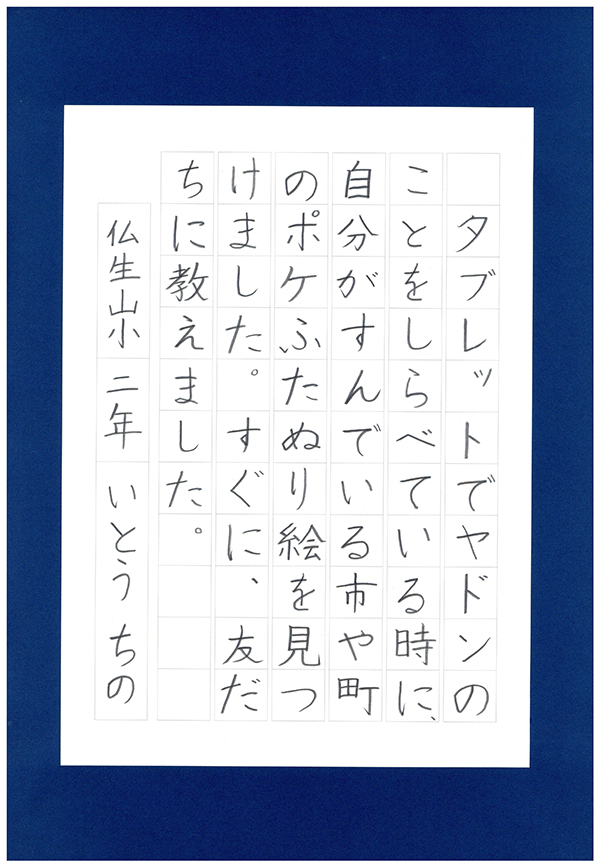 タブレットでヤドンの
ことをしらべている時に、
自分がすんでいる市や町
のポケふたぬり絵を見つ
けました。すぐに、友だ
ちに教えました。
仏生山小 二年 いとう ちの